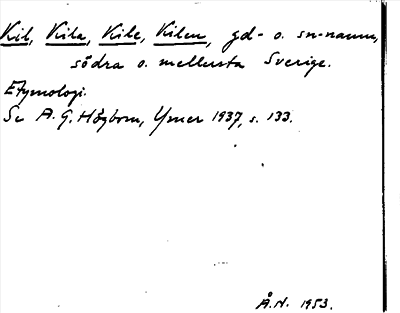 Kil, Kila, Kile, Kilen, gd- o. sn-namn,
södra o. mellersta Sverige.
Etymologi.
Se A. G. Högbom, Ymer 1937, s. 133.
Å.N. 1953.